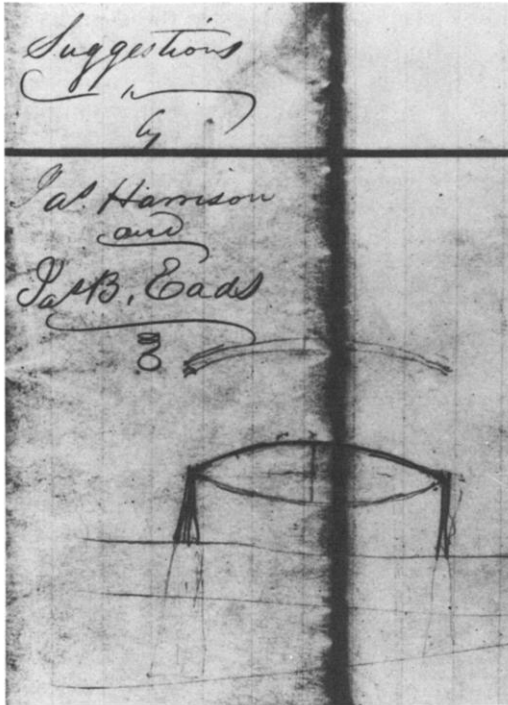 Suggestions
by
Jas. Harrison
and
Jas B. Eads